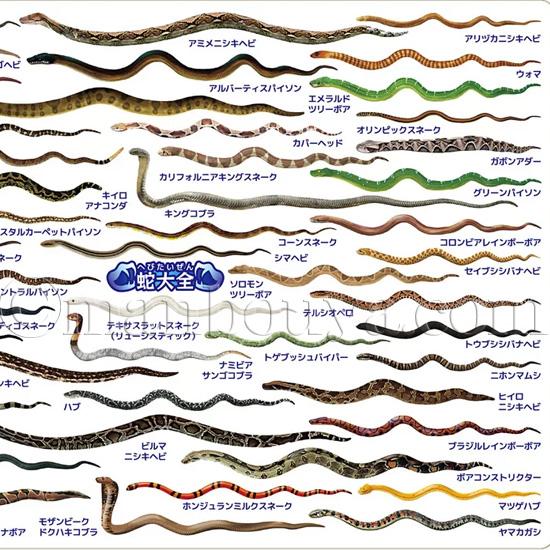 アミメニシキヘビ
アリヅカニシキヘビ
ゴヘビ
アルバーティスパイソン
ウォマ
エメラルド
ツリーボア
オリンピックスネーク
カパーヘッド
ガボンアダー
カリフォルニアキングスネーク
キイロ
アナコンダ
キングコブラ
グリーンパイソン
スタルカーペットパイソン
コーンスネーク
コロンビアレインボーボア
へびたいぜん
蛇大全
シマヘビ
ネーク
セイブシシバナヘビ
ソロモン
ツリーボア
ントラルパイソン
テルシオペロ
テキサスラットスネーク
(リューシスティック)
ディゴスネーク
トウブシシバナヘビ
トゲブッシュバイパー
ナミビア
サンゴコブラ
ニホンマムシ
シキヘビ
ハブ
ヒイロ
ニシキヘビ
ビルマ
ニシキヘビ
ブラジルレインボーボア
ヘビ
ボアコンストリクター
ホンジュランミルクスネーク
マツゲハブ
モザンビーク
ドクハキコブラ
ナボア
ヤマカガシ